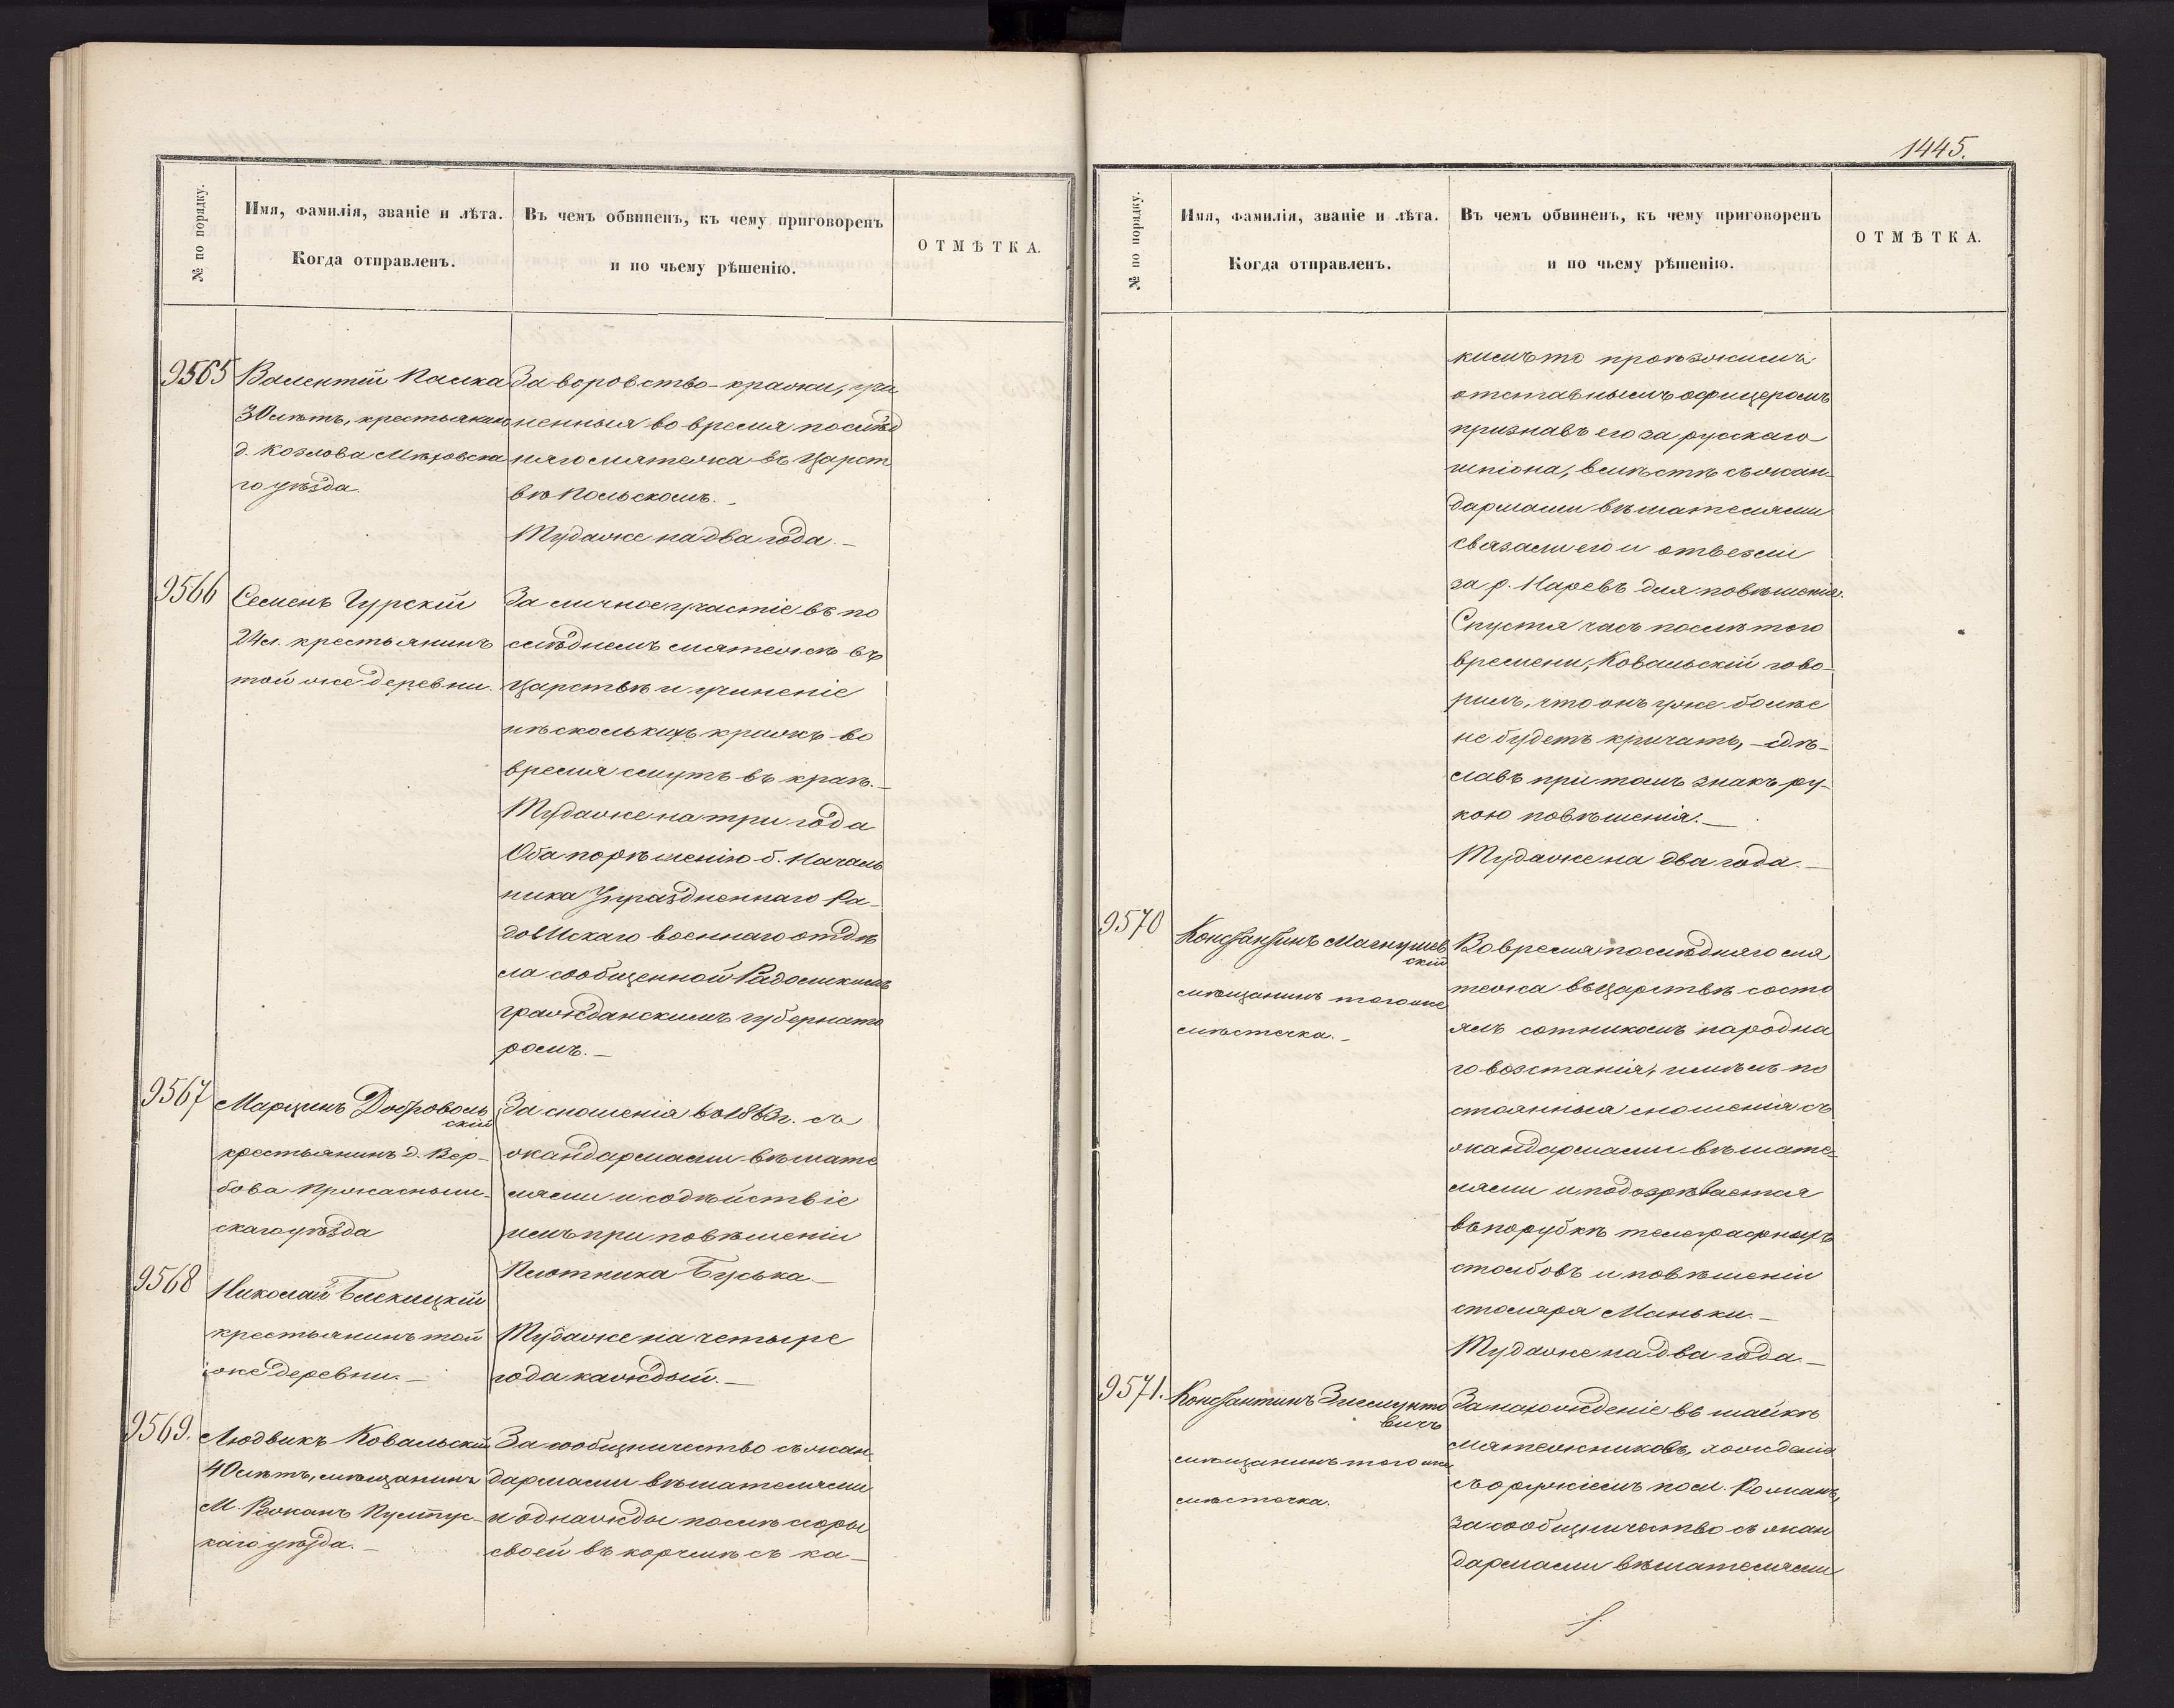 № по порядку.
Имя, фамилія, званіе и лѣта.
Когда отправленъ.
Въ чемъ обвиненъ, къ чему приговоренъ
и по чьему рѣшенію.
ОТМѢТКА.
9565
Валентій Палка
30 лѣтъ, крестьянинъ
д. Козлова Мѣховска
го уѣзда.
За воровство-кражи, учи
ненныя во время послѣд
няго мятежа въ Царст
вѣ Польскомъ.
Туда же на два года. —
9566
Семенъ Гурскій
24 л. крестьянинъ
той же деревни.
За личное участіе въ по
слѣднемъ мятежѣ въ
Царствѣ и учиненіе
нѣсколькихъ кражъ во
время смутъ въ краѣ. —
Туда же на три года
Оба по рѣшенію б. Началь
ника Упраздненнаго Ра-
домскаго военнаго отдѣ
ла сообщенной Радомскимъ
гражданскимъ губернато
ромъ. —
9567
Марцинъ Добровольскій
крестьянинъ д. Вер-
бова Пржаснышскаго уѣзда
За сношенія въ 1863 г. съ
жандармами-вѣшате
лями и содѣйствіе
имъ при повѣшеніи
Плотника Буська. —
9568
Николай
крестьянинъ той
же деревни. —
Туда же на четыре
года каждый. —
9569.
Людвикъ Ковальскій
40 лѣтъ, мѣщанинъ
М. Рожанъ Пултус-
каго уѣзда. —
За сообщничество съ жан
дармами вѣшателями
и однажды послѣ ссоры
своей въ корчмѣ съ ка-
1445.
№ по порядку.
Имя, фамилія, званіе и лѣта.
Когда отправленъ.
Въ чемъ обвиненъ, къ чему приговоренъ
и по чьему рѣшенію.
ОТМѢТКА.
кимъ то проѣзжимъ
отставнымъ офицеромъ
признавъ его за русскаго
шпіона, вмѣстѣ съ жан-
дармами вѣшателями
связали его и отвезли
за р. Наревъ для повѣшенія.
Спустя часъ послѣ того
времени, Ковальскій гово-
рилъ, что онъ уже болѣе
не будетъ кричать, — сдѣ-
лавъ при томъ знакъ ру-
кою повѣшенія. —
Туда же на два года. —
9570
Константинъ Магнушевскій
мѣщанинъ того же
мѣстечка. —
Во время послѣдняго мя
тежа въ Царствѣ состо
ялъ сотникомъ народна
го возстанія, имѣлъ по
стоянныя сношенія съ
жандармами вѣшате-
лями и подозрѣвается
въ порубкѣ телеграфныхъ
столбовъ и повѣшеніи
столяра Маньки. —
Туда же на два года. —
9571.
Константинъ
мѣщанинъ того же
мѣстечка.
За нахожденіе въ шайкѣ
мятежниковъ, хожденія
съ оружіемъ по м. Рожанъ,
за сообщничество съ жан
дармами вѣшателями